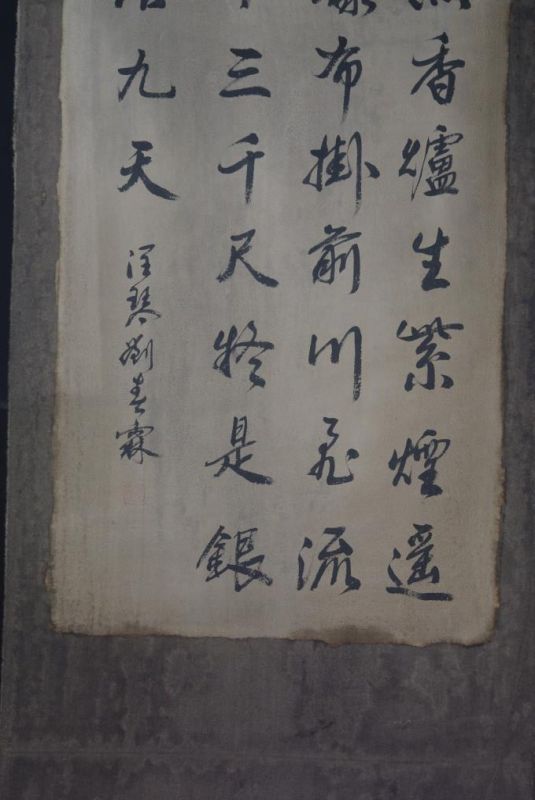 香爐生紫煙遥
布掛前川飛流
三千尺疑是銀
九天
潤琴劉春霖